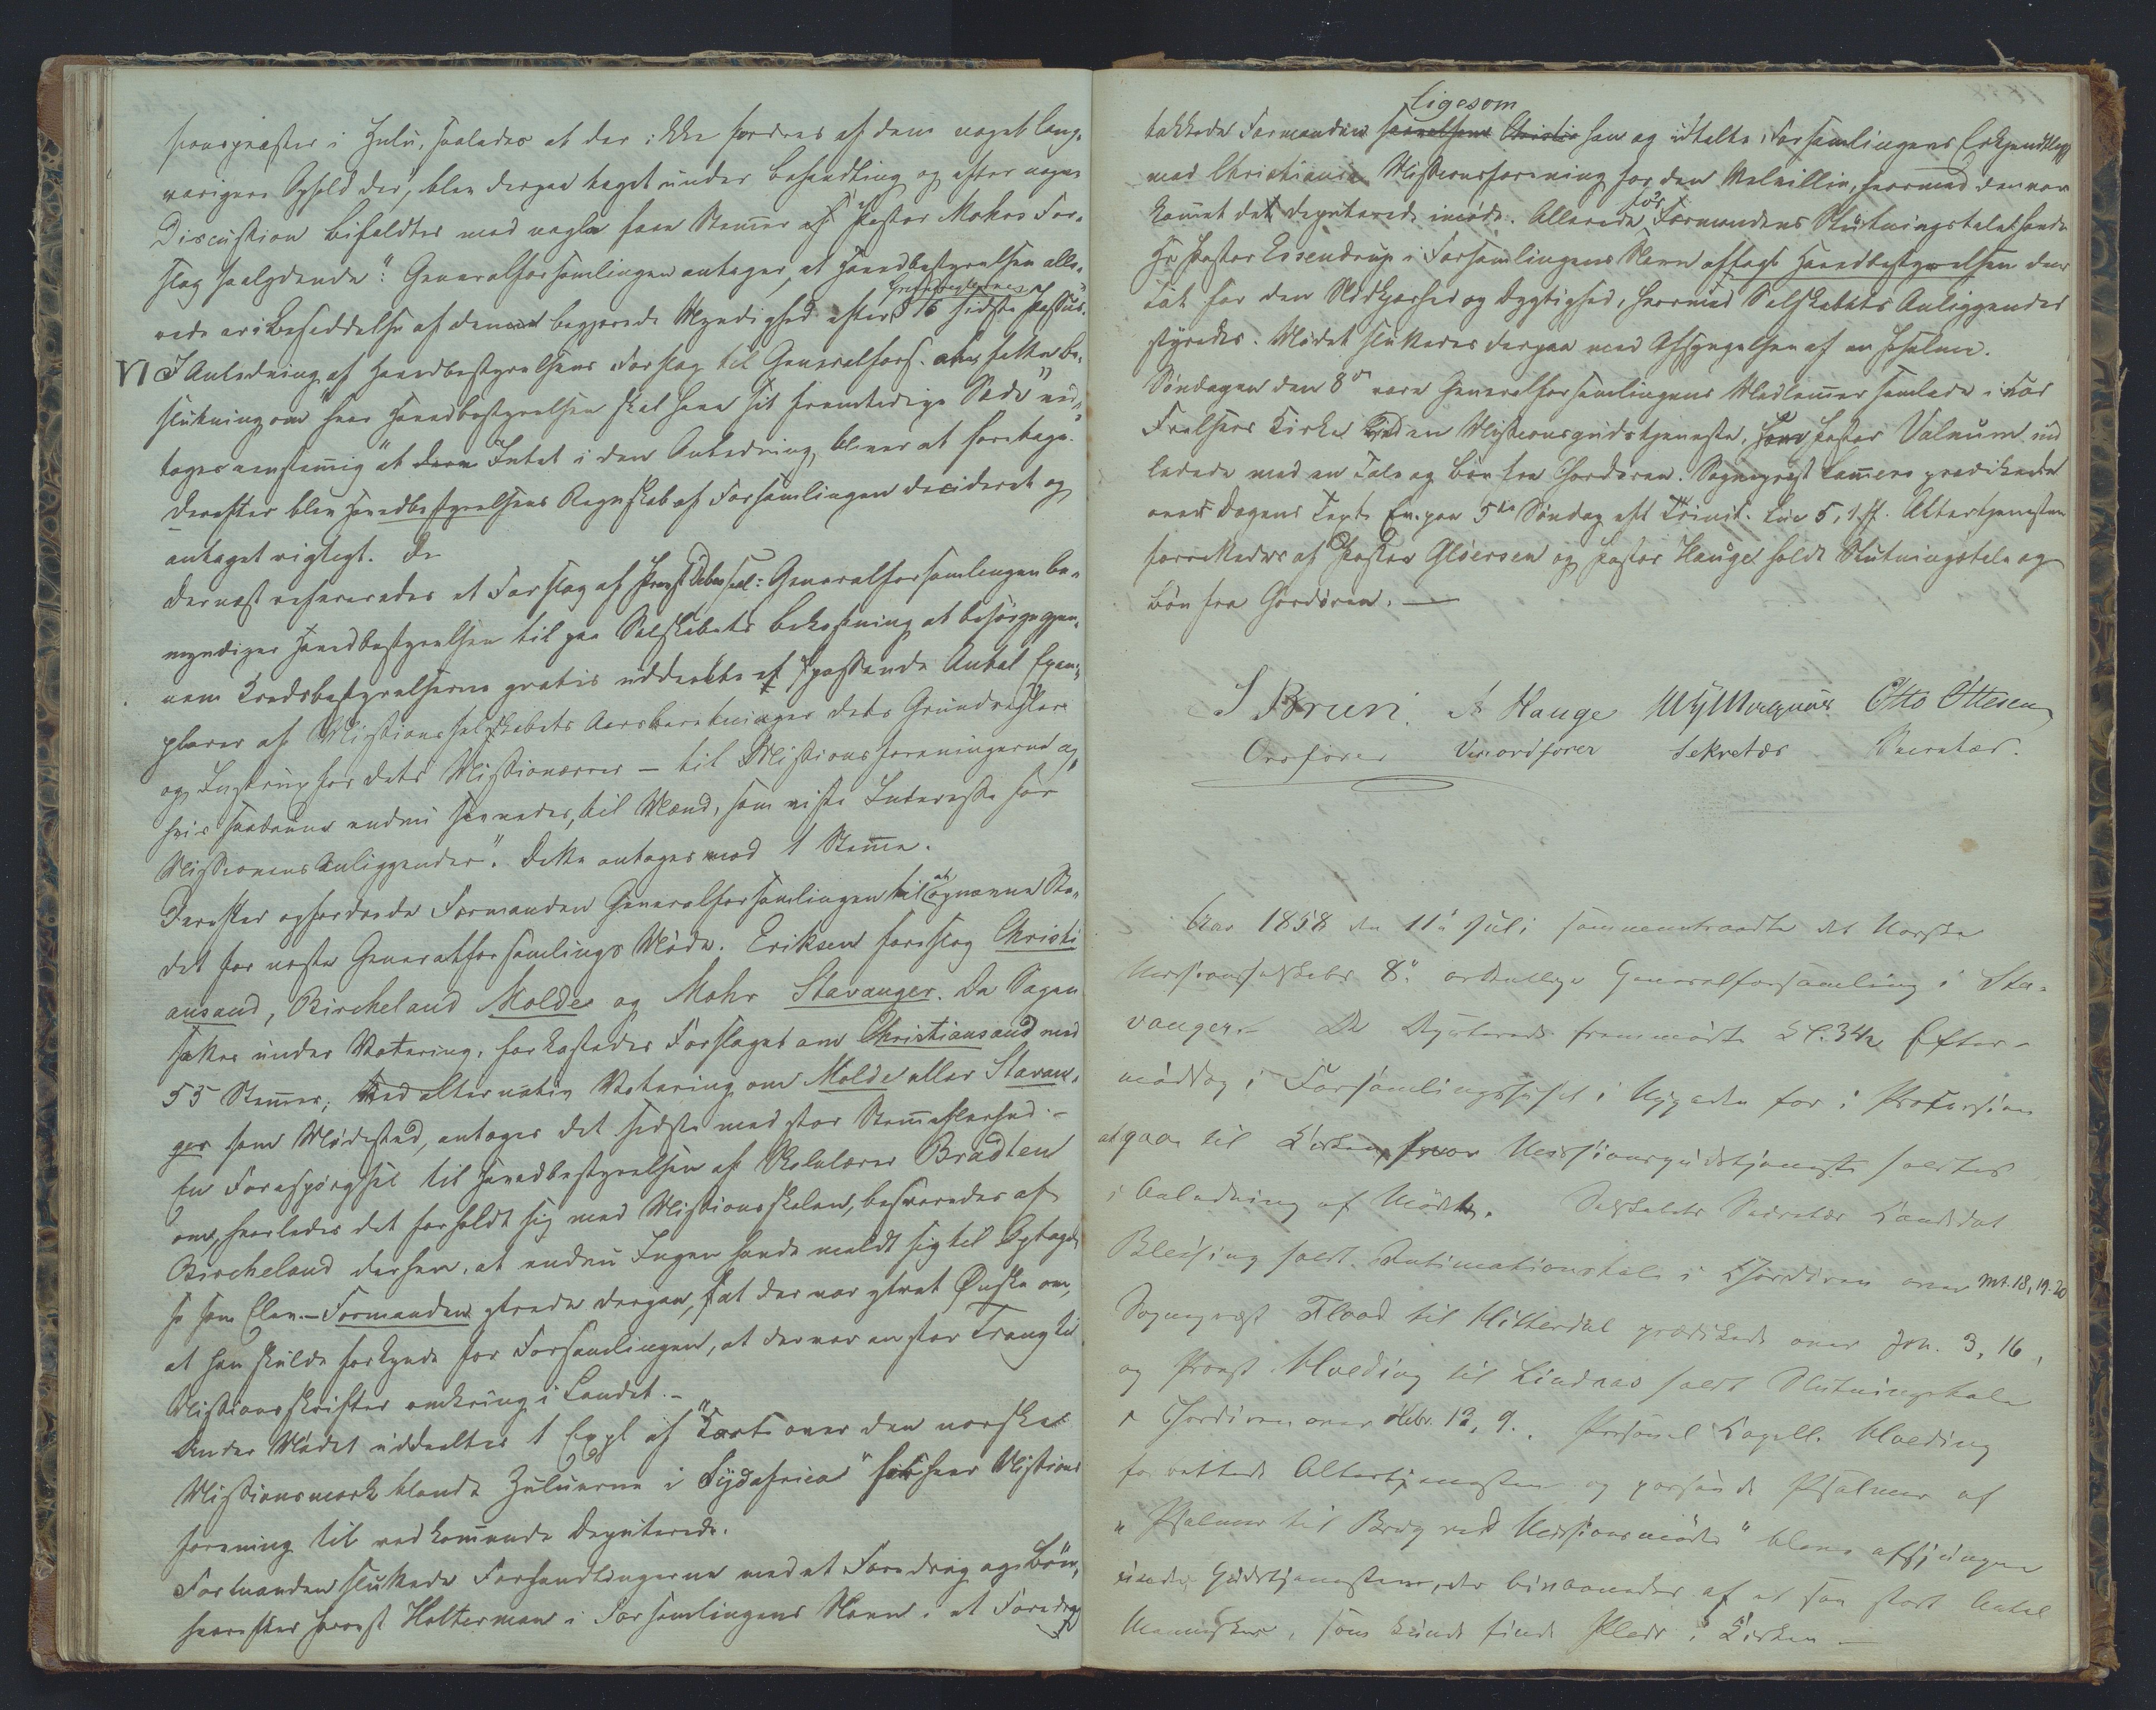 sionspræster i Zulu, saaledes at der ikke fordres af dem noget lang-
varigere Ophold der, blev derpaa taget under Behandling og efter nogen
Discussion bifaldtes med nogle faa Stemer af Pastor Mohrs For-
slag saalydende: "Generalforsamlingen antager, at Hovedbestyrelsen alle-
rede er i Besiddelse af den begjærede Myndighed efter Grundreglernes § 16 sidste Passus."
VI I Anledning af Hovedbestyrelsens Forslag til Generalfors. at fatte Be-
slutning om "hvor Hovedbestyrelsen skal have sit fremtidige Sæde" ved-
toges eenstemig "at Intet i den Anledning bliver at foretage.
Derefter blev Hovedbestyrelsens Regnskab af Forsamlingen decideret og
antaget rigtigt. De
Dernæst refereredes et Forslag af Provst : Generalforsamlingen be-
myndiger Hovedbestyrelsen til paa Selskabets Bekostning at besørge gjen-
nem Kredsbestyrelserne gratis uddeelte et passende Antal Exem-
plarer af Missionsselskabets Aarsberetninger dets Grundregler
og Instrux for dets Missionærer – til Missionsforeningerne og
hvis saadanne endnu savnedes, til Mænd, som viste Interesse for
Missionens Anliggender". Dette antoges mod 1 Steme.
Derefter opfordrede Formanden Generalforsamlingen til at opnævne Ste-
det for næste Generalforsamlings Møde. Eriksen foreslog Christi
ansand, Bircheland Molde og Mohr Stavanger. Da Sagen
sattes under Votering, forkastedes Forslaget om Christiansand med
55 Stemer; Ved alternativ Votering om Molde eller Stavan-
ger som Mødested, antoges det sidste med stor Stemeflerhed. –
En Forespørgsel til Hovedbestyrelsen af Skolelærer Bradten
om, hvorledes det forholdt sig med Missionsskolen, besvaredes af
Bircheland derhen, at endnu Ingen havde meldt sig til Optagel-
se som Elev. – Formanden ytrede derpaa, at der var ytret Ønske om,
at han skulde forkynde for Forsamlingen, at der var en stor Trang til
Missionsskrifter omkring i Landet. –
Under Mødet uddeeltes 1 Expl af "Kart over den norske
Missionsmark blandt Zuluerne i Sydafrica" for hver Missions
forening til vedkommende Deputerede.
Formanden sluttede Forhandlingerne med et Foredrag og Bøn,
hvorefter Provst Holterman i Forsamlingens Navn i et Foredrag
takkede Formanden Ligesom han og udtalte Forsamlingens Erkjendtlighed
mod Christiania Missionsforening for den Velvillie, hvormed den var
komet de Deputerede imøde. Allerede før Formandens Slutningstale havde
Hr Pastor Essendrop i Forsamlingens Navn aflagt Hovedbestyrelsen den
Tak for den Nidkjærhed og Dygtighed, hvormed Selskabets Anliggender
styredes. Mødet sluttedes derpaa med Afsyngelsen af en Psalme.
Søndagen den 8de vare Generalforsamlingens Medlemer samlede i Vor
Frelsers Kirke Ved en Missionsgudstjeneste, hvor Pastor Valeum ind
ledede med en Tale og Bøn fra Chordøren. Sognepræst Lamers prædikede
over Dagens Text Ev. paa 5te Søndag eft Trinit. Luc 5, 1 ff. Altertjenesten
forrettedes af Pastor Gløersen og Pastor Hauge holdt Slutningstale og
Bøn fra Chordøren. —
J Bruun. A Hauge Otto Ottesen
Ordfører Viceordfører Sekretær Secretær.
Aar 1858 den 11te Juli sammentraadte det Norske
Missionsselskabs 8de ordentlige Generalforsamling i Sta-
vanger. – De Deputerede fremmødte Kl. 3½ Efter-
middag i Forsamlingshuset i Nygaden for i Procession
at gaae til Kirken, hvor Missionsgudstjeneste holdtes
i Anledning af Mødet. Selskabets Secretær Candidat
Blessing holdt Intimationstale i Chordøren over Mt. 18, 19-20
Sognepræst Flood til Hitterdal prædikede over Joh. 3, 16,
og Provst Hvoding til Lindaas holdt Slutningstale
i Chordøren over Hebr. 13, 9. Personel Capell. Hvoding
forrettede Altertjenesten og passende Psalmer af
"Psalmer til Brug ved Missionsmøde" bleve afsjungne
under Gudstjenesten, der bivaanedes af et saa stort Antal
Mennesker, som kunde finde Plads i Kirken –